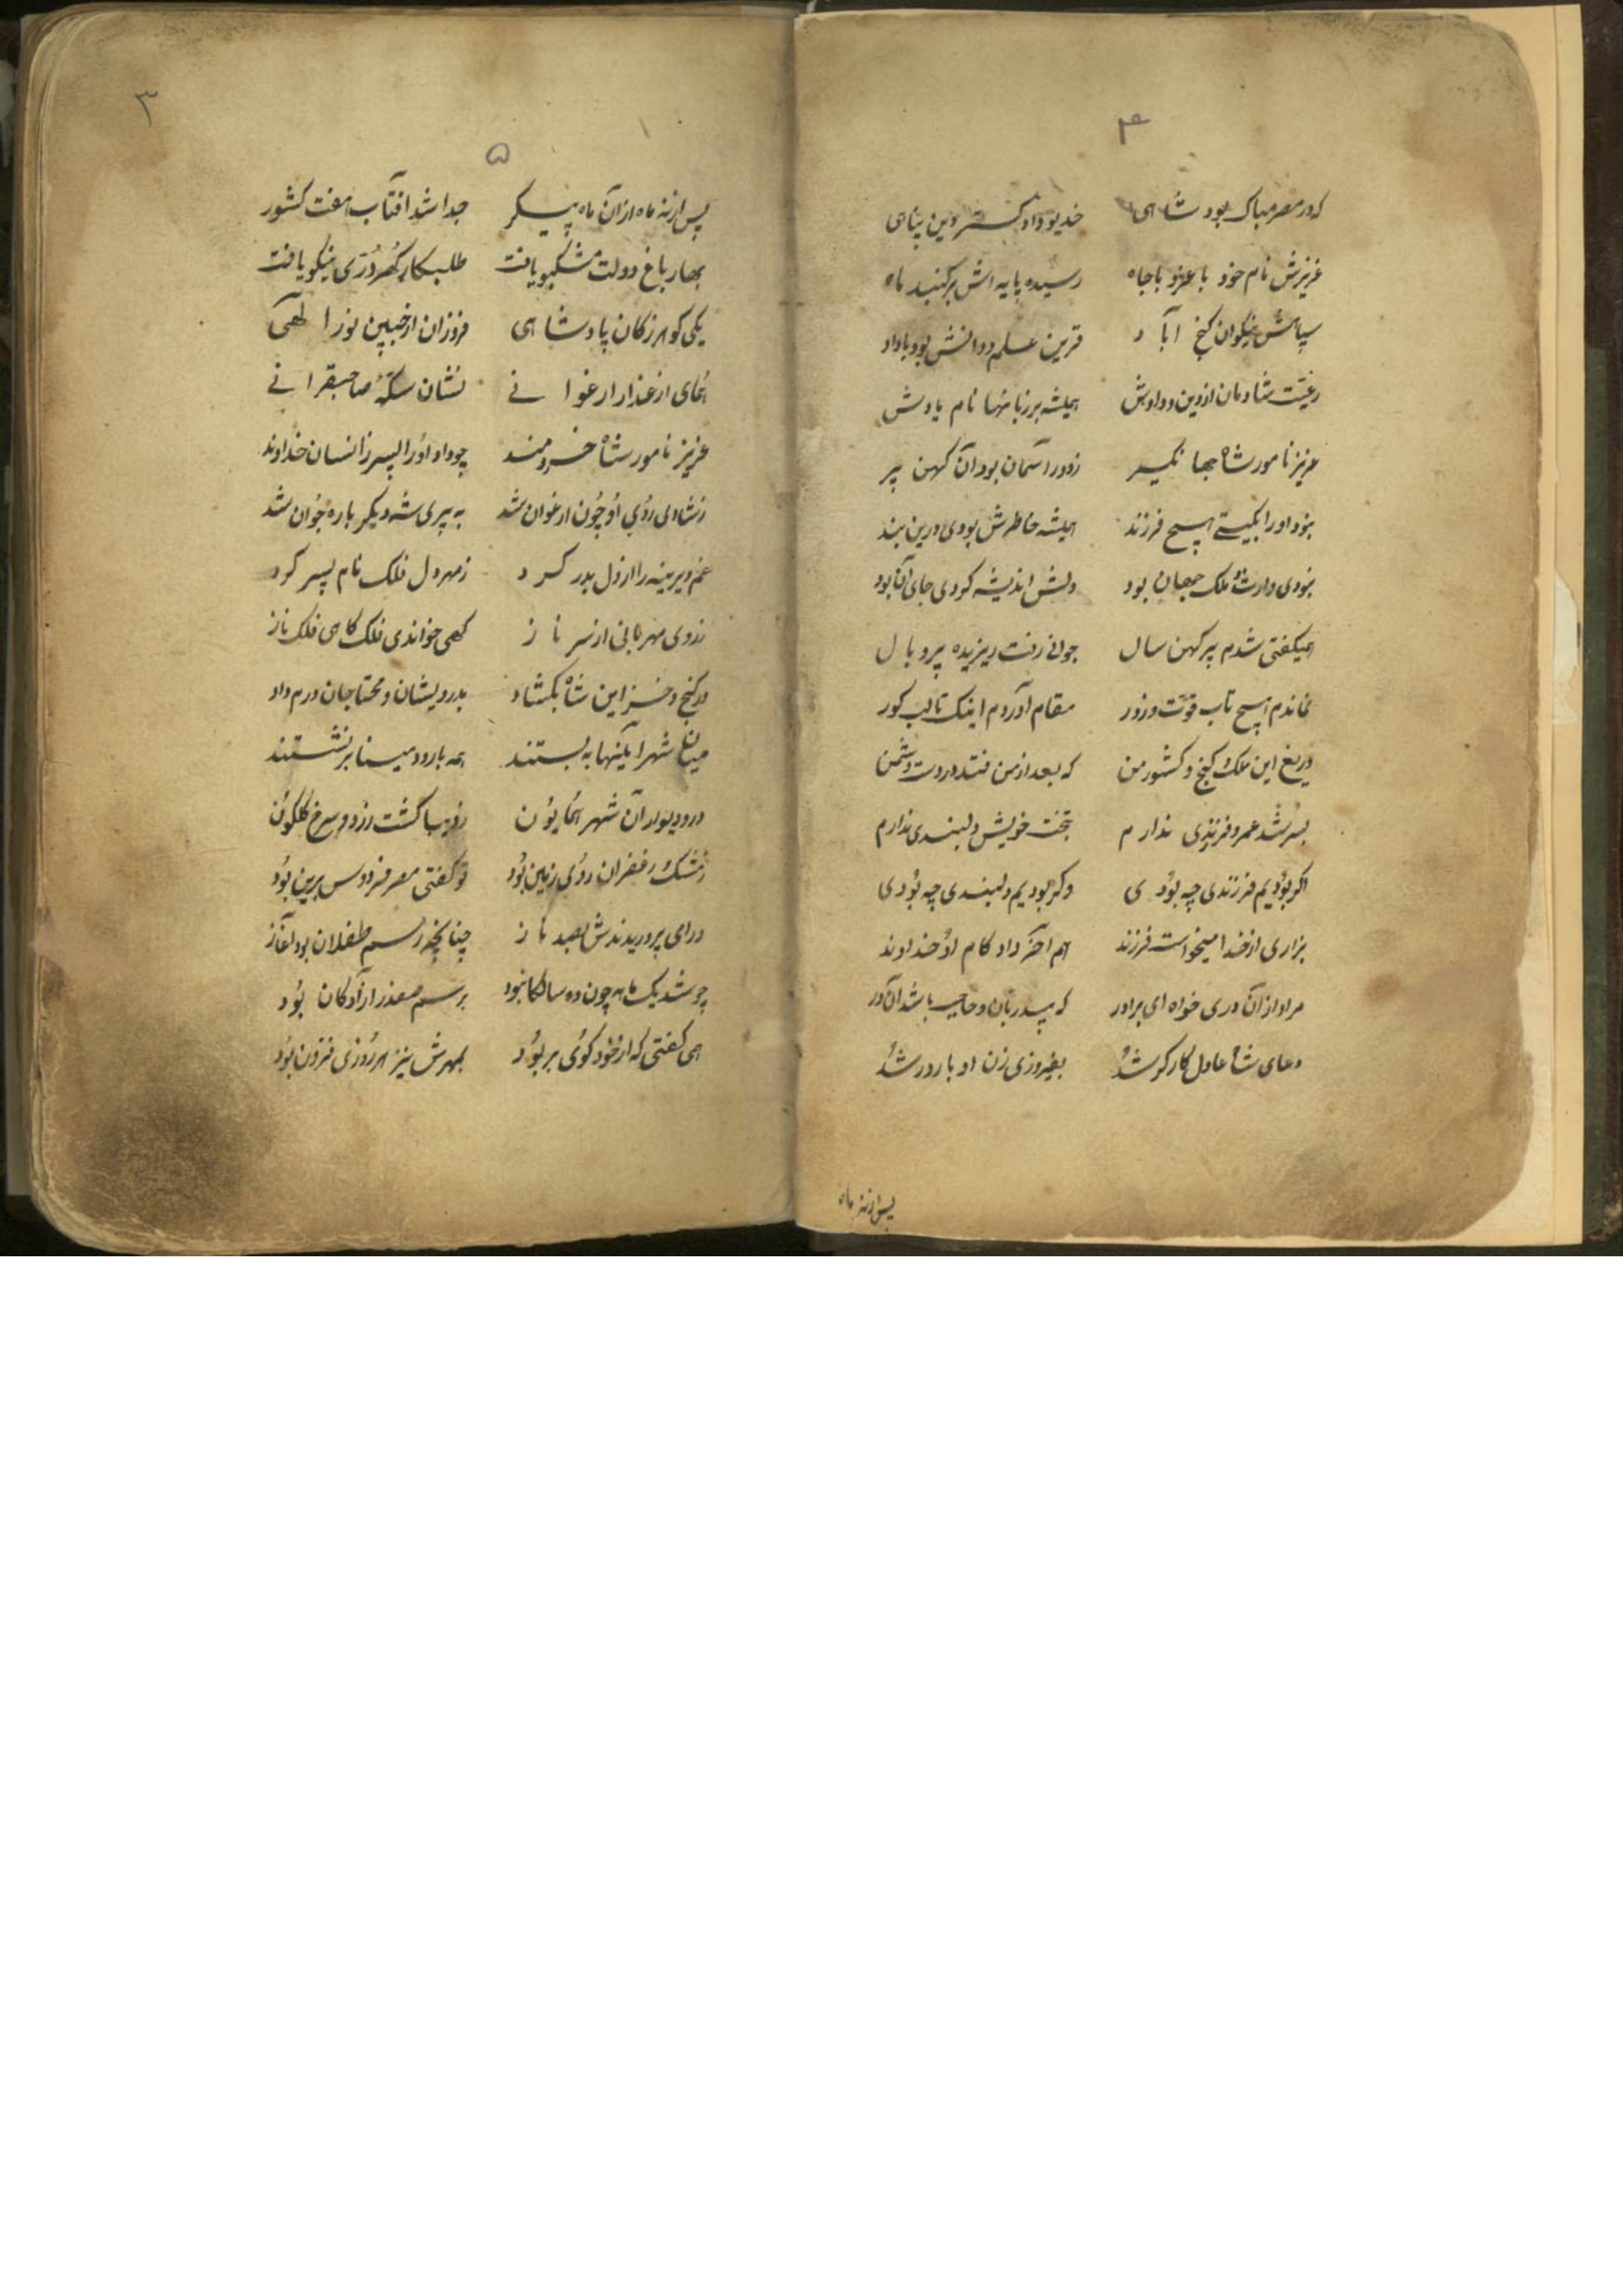 ۴
که در مصر مبارک بود شاهی خدیو دادگستر دین پناهی
عزیزش نام خود با عز و با جاه رسیده پایه اش بر گنبد ماه
سپاهش نیکوان گنج آباد قرین علم و دانش بود با داد
رعیت شادمان از دین و دادش همیشه بر زبانها نام یادش
عزیز نامور شاه جهانگیر ز دور آسمان بود آن کهن پیر
نبود او را بگیتی هیچ فرزند همیشه خاطرش بودی درین بند
نبودی وارث ملک جهان بود دلش اندیشه کردی جای آن بود
همیگفتی شدم پیر کهن سال جوانی رفت ریزیده پر و بال
نماندم هیچ تاب قوت و زور مقام آوردم اینک تا لب گور
دریغ این ملک گنج و کشور من که بعد از من فتد در دست دشمن
بسر شد عمر و فرزندی ندارم بتخت خویش دلبندی ندارم
اگر بودیم فرزندی چه بودی وگر بودیم دلبندی چه بودی
بزاری از خدا میخواست فرزند هم آخر داد کام او خداوند
مراد از آن دری خواه ای برادر که بی دربان و حاجب باشد آن در
دعای شاه عادل کارگر شد بفیروزی زن او بارور شد
پس از نه ماه
۳
۵
پس از نه ماه از آن ماه پیکر جدا شد آفتاب هفت کشور
بهار باغ دولت مشکبو یافت طلبکار گهر دری نیکو یافت
یکی گوهر ز کان پادشاهی فروزان از جبین نور الهی
همای از عذار ارغوانی نشان سکه صاحبقرانی
عزیز نامور شاه خردمند چو داد او را پسر زانسان خداوند
ز شادی روی او چون ارغوان شد به پیری شه دیگر باره جوان شد
غم دیرینه را از دل بدر کرد ز مهر دل فلک نام پسر کرد
ز روی مهربانی از سر ناز گهی خواندی فلک گاهی فلک ناز
در گنج و خزاین شاه بگشاد بدرویشان و محتاجان درم داد
میان شهر آیینها به بستند همه با رود مینا بر نشستند
در و دیوار آن شهر همایون ز دیبا گشت زرد و سرخ گلگون
ز مشک زعفران روی زمین بود تو گفتی مصر فردوس برین بود
درای پروریدندش بصد ناز چنانچه رسم طفلان بود آغاز
چو شد یک ماهه چون ده سالگان بود برسم صفدر آزادگان بود
همی گفتی که از خود گوی بربود بمهرش نیز هر روزی فزون بود